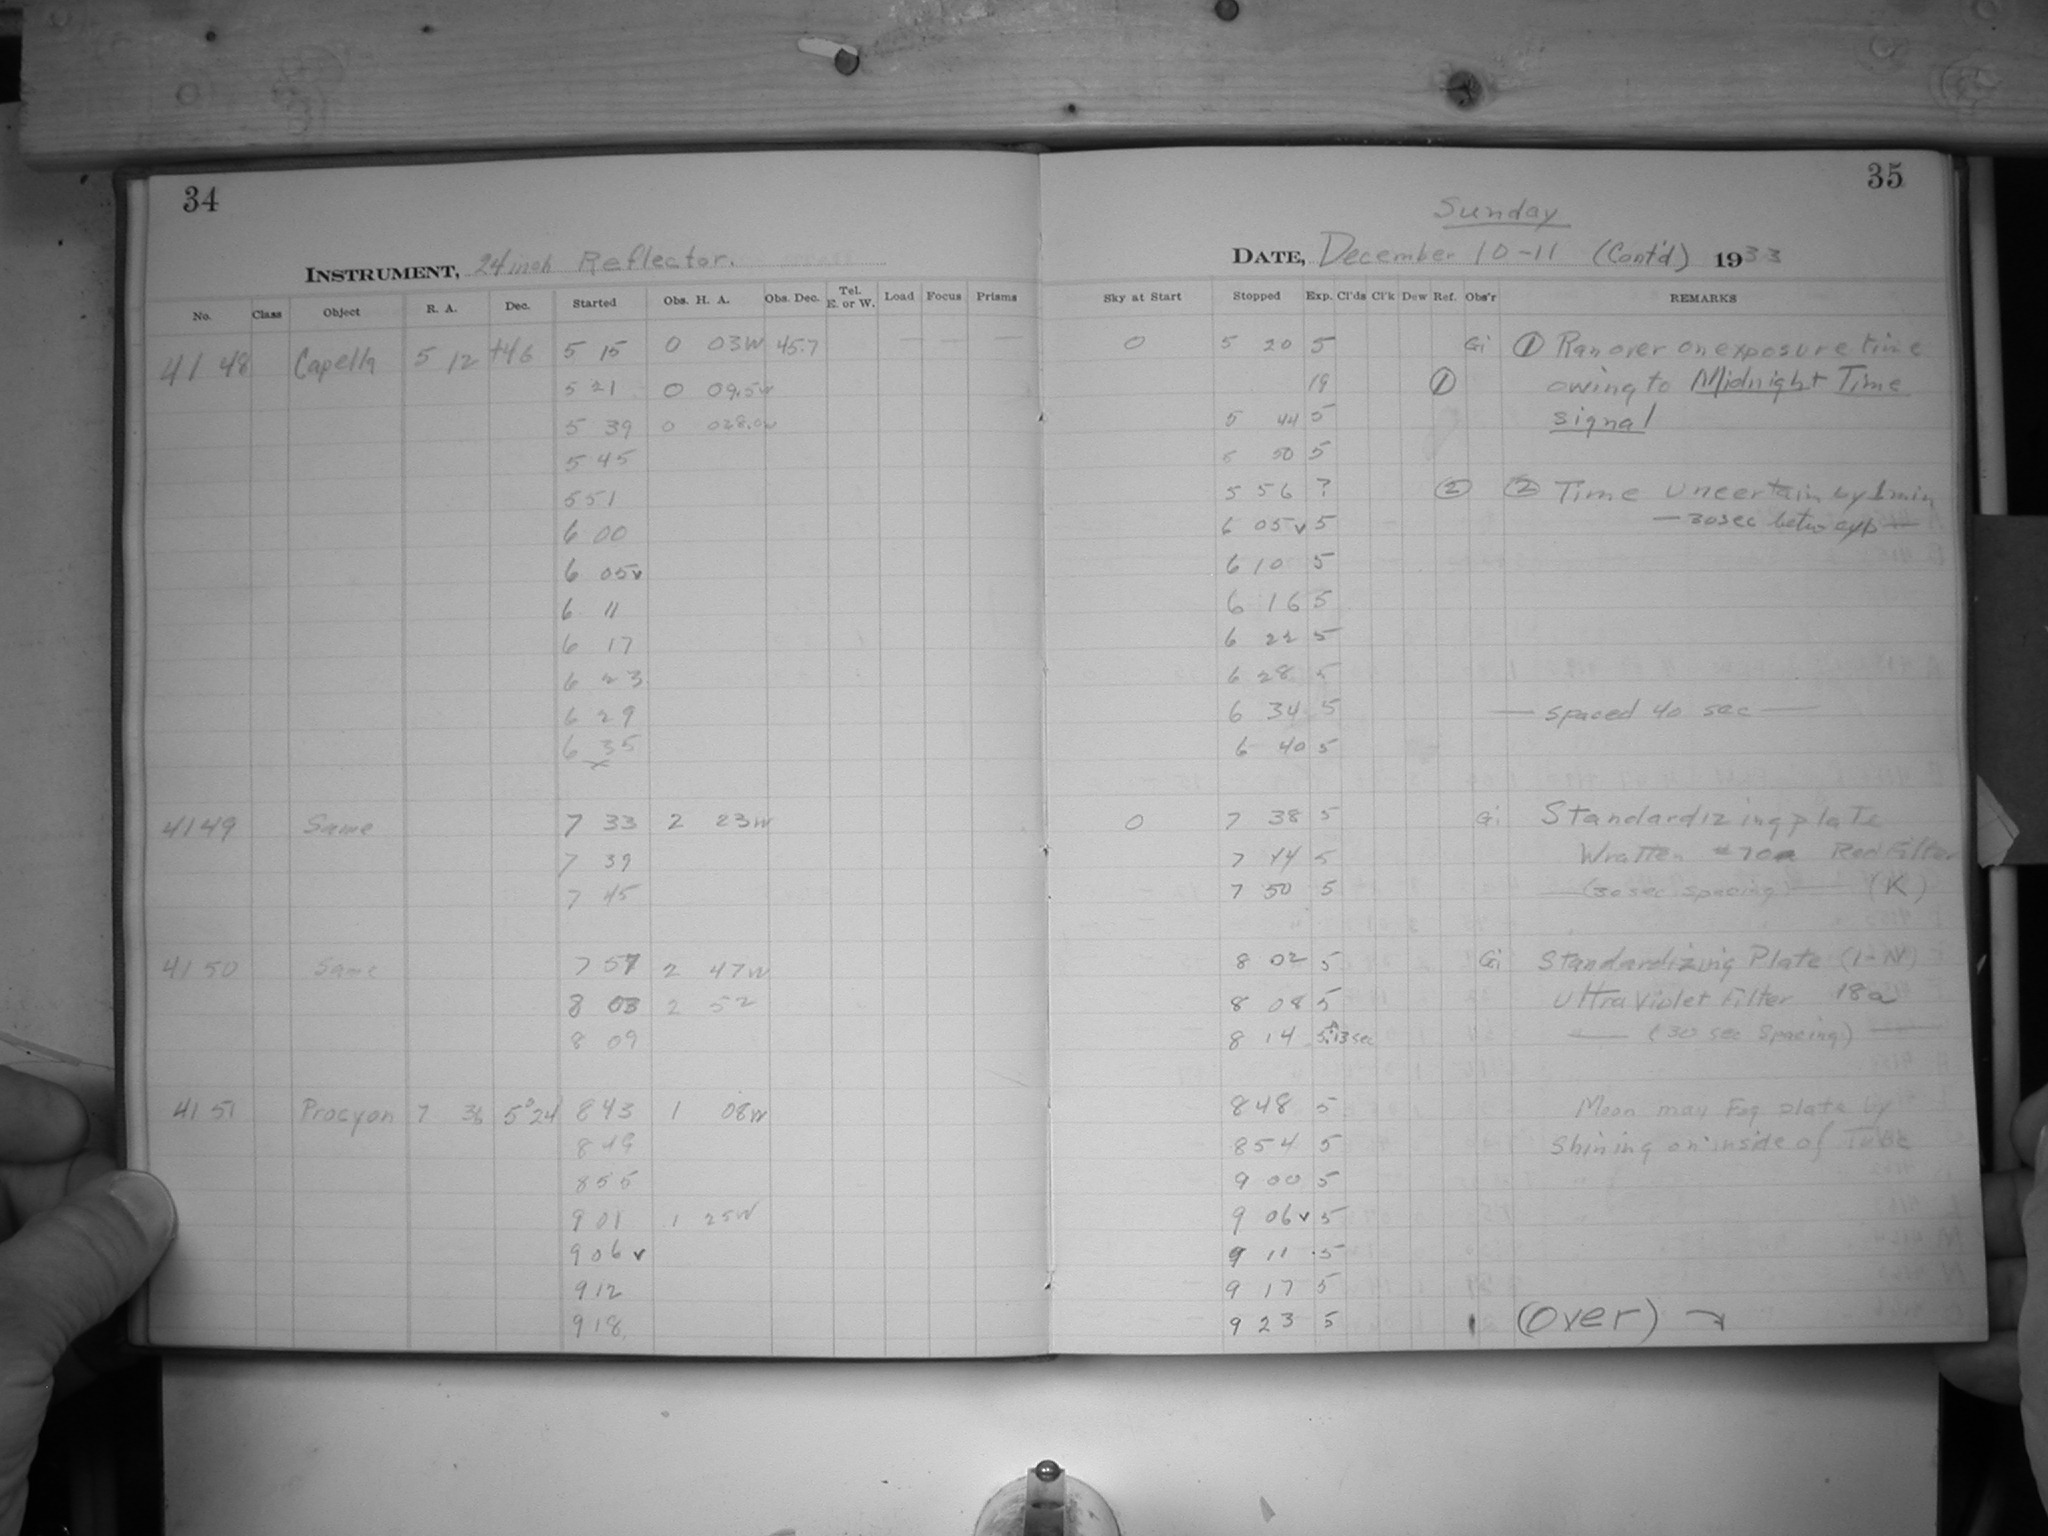 34
INSTRUMENT, 24 inch Reflector.
No. Class Object R. A. Dec. Started Obs. H. A. Obs. Dec. Tel. E. or W. Load Focus Prisms
41 48 Capella 5 12 +46 5 15 0 03W 45.7 — — —
5 21 0 09.5W
5 39 0 028.0W
5 45
5 51
6 00
6 05v
6 11
6 17
6 23
6 29
6 35
4149 Same 7 33 2 23W
7 39
7 45
41 50 Same 7 57 2 47W
8 03 2 52
8 09
41 51 Procyon 7 36 5°24 8 43 1 08W
8 49
8 55
9 01 1 25W
9 06 v
9 12
9 18
35
Sunday
DATE, December 10-11 (Cont'd) 1933
Sky at Start Stopped Exp. Cl'ds Cl'k Dew Ref. Obs'r REMARKS
0 5 20 5 Gi ① Ran over on exposure time
19 ① owing to Midnight Time
5 44 5 signal
5 50 5
5 56 ? ② ② Time uncertain by 1 min
6 05v 5 — 30 sec betw exp —
6 10 5
6 16 5
6 22 5
6 28 5
6 34 5 — spaced 40 sec —
6 40 5
0 7 38 5 Gi Standardizing plate
7 44 5 Wratten #70 Red Filter
7 50 5 — (30 sec spacing) — (K)
8 02 5 Gi Standardizing Plate (1-N)
8 08 5 Ultra Violet Filter 18a
8 14 5 13 sec — (30 sec Spacing) —
8 48 5 Moon may Fog plate by
8 54 5 shining on inside of TUBE
9 00 5
9 06v 5
9 11 5
9 17 5
9 23 5 (Over)